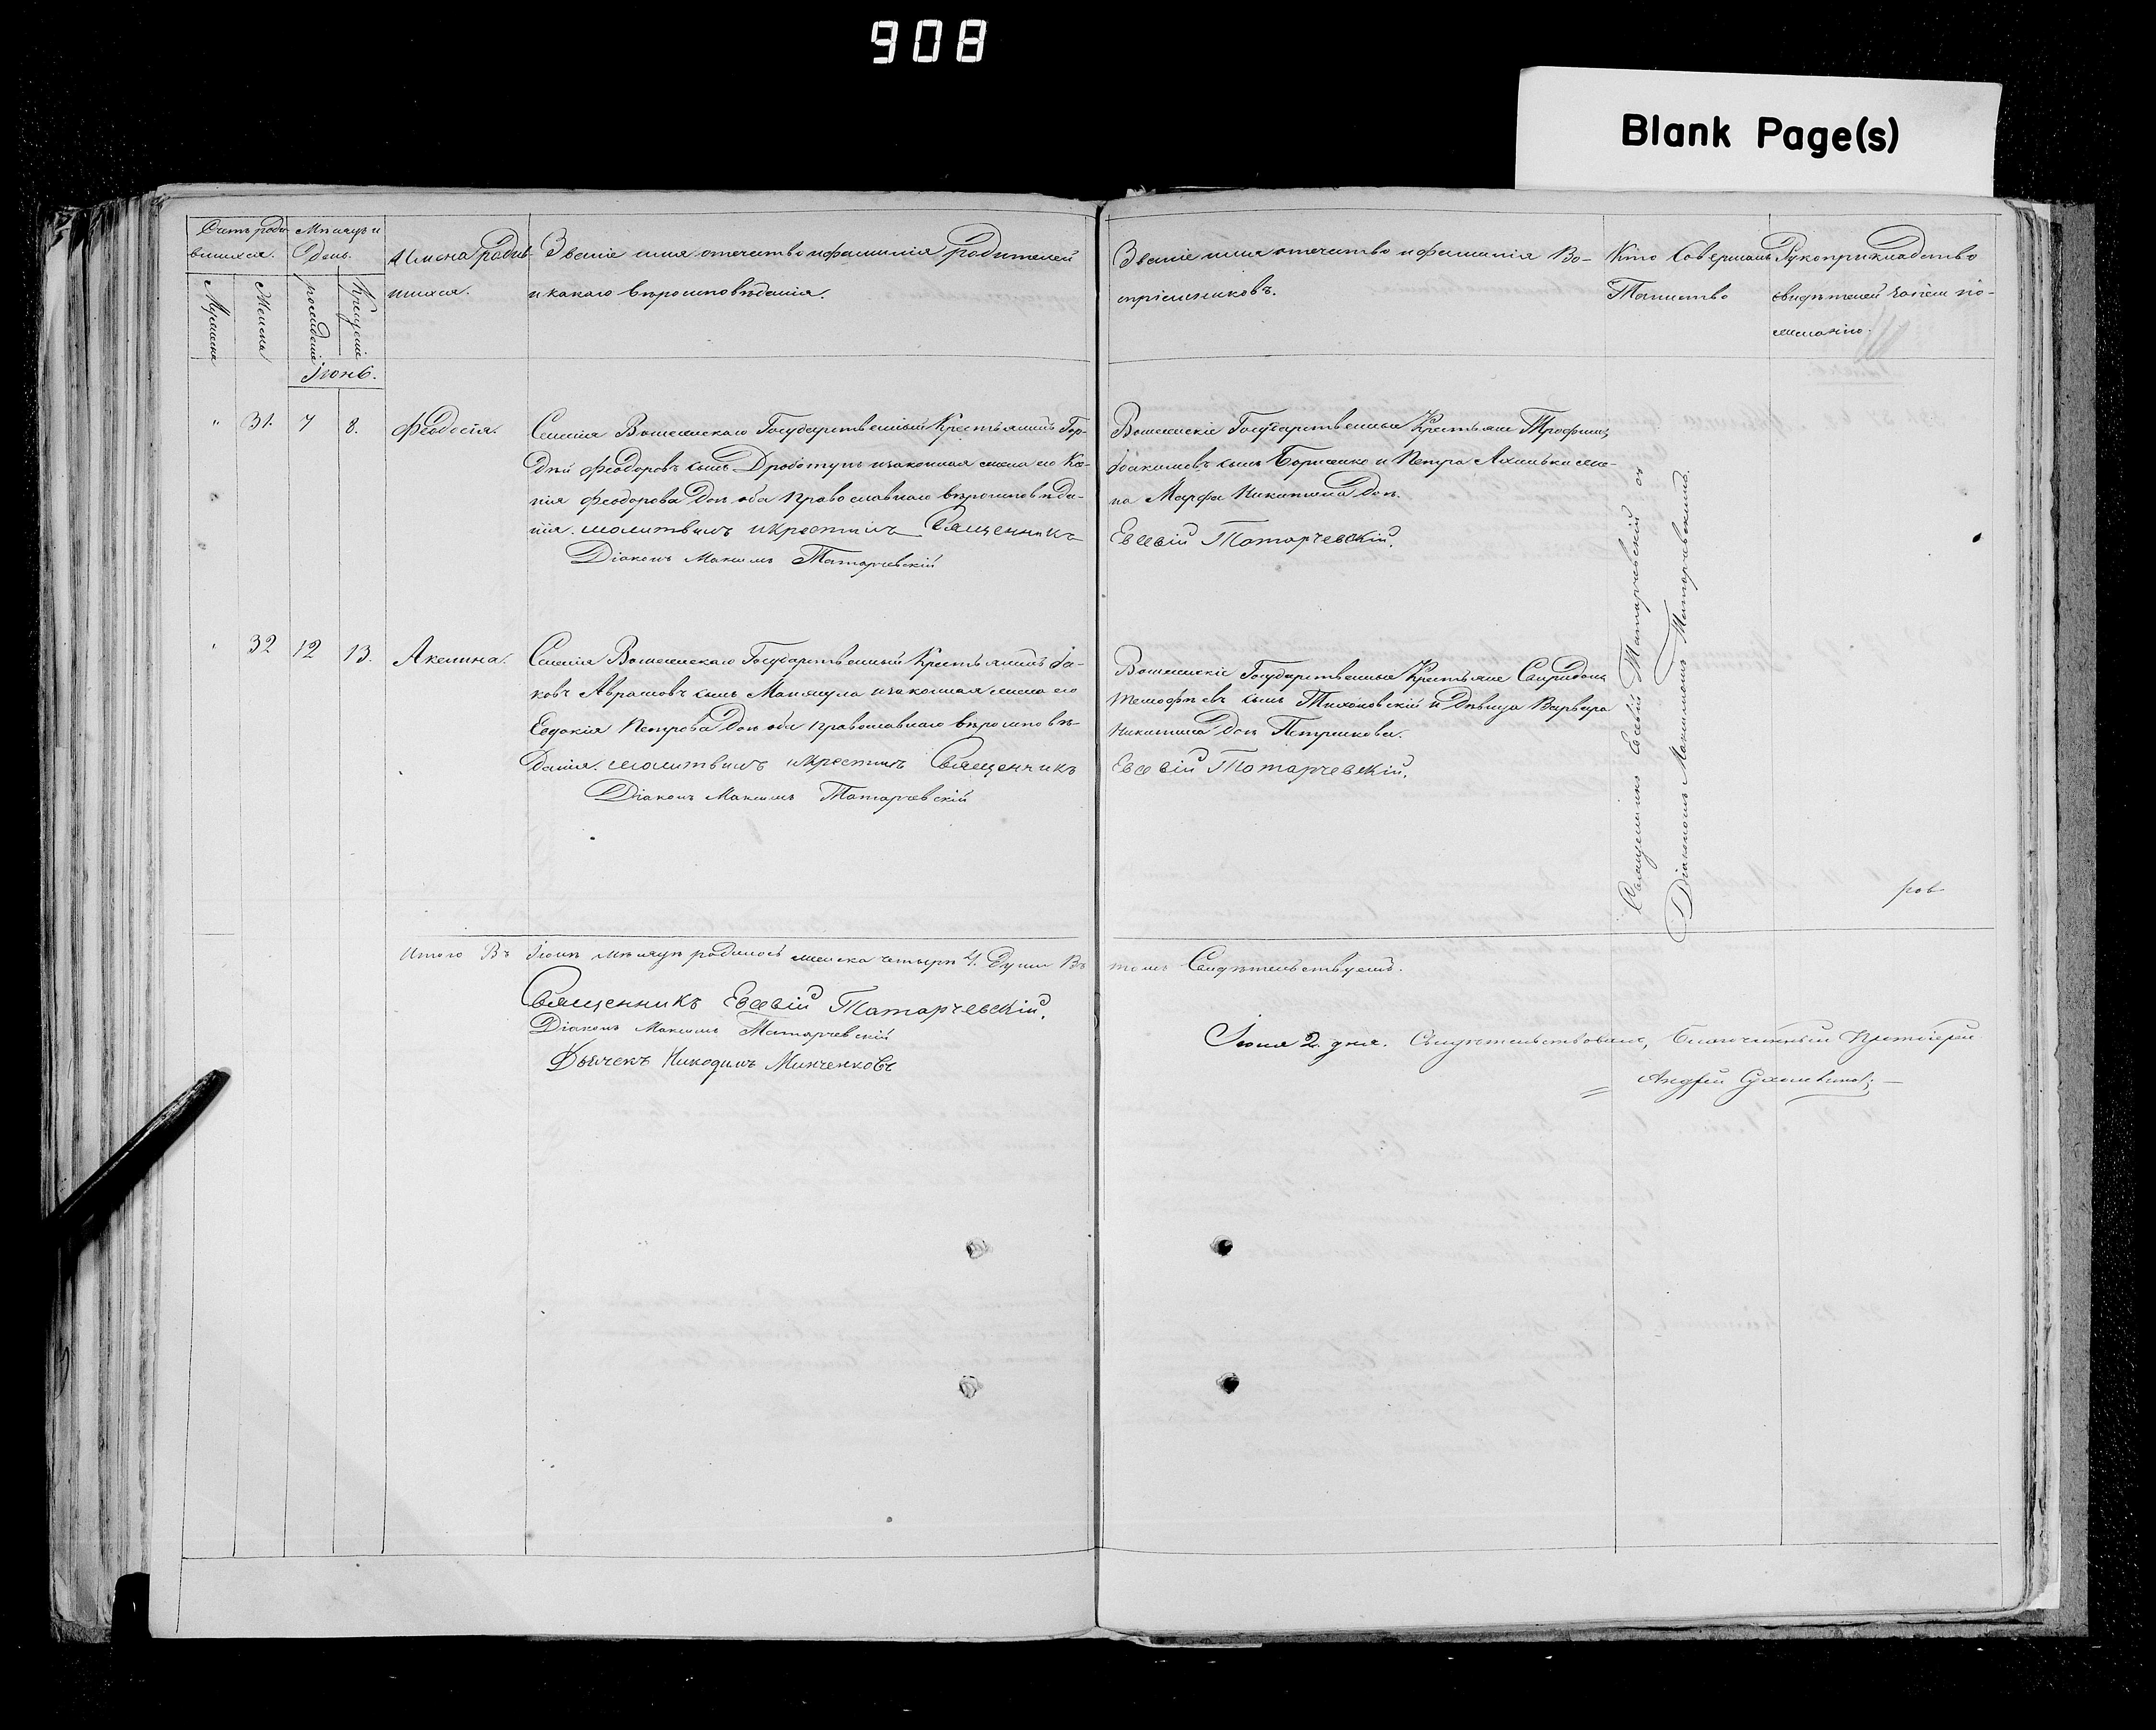 908
Blank Page(s)
Счетъ роди-
вшихся.
Мѣсяцъ и
день.
Имена родив-
шихся.
Званіе имя отечество и фамилія родителей
и какого вѣроисповѣданія.
Мужеска
Женска
рожденія
Крещенія
Іюнь.
" 31. 7 8. Феодосія.
Селенія Государственный Крестьянинъ Гор-
дѣй Феодоровъ сынъ Дроботунъ и законная жена его Ксе-
нія Феодорова дочь оба православнаго вѣроисповѣда-
нія. молитвилъ и крестилъ Священникъ
Діаконъ Максимъ Татарчевскій
" 32 12 13. Акилина.
Селенія Государственный Крестьянинъ Іа-
ковъ Аврамовъ сынъ и законная жена его
Евдокія Петрова дочь оба православнаго вѣроисповѣ-
данія. молитвилъ и крестилъ Священникъ
Діаконъ Максимъ Татарчевскій
Итого Въ Іюнѣ мѣсяцѣ родилось женска четыре 4. души Въ
Священникъ Евсевій Татарчевскій.
Діаконъ Максимъ Татарчевскій
Дьячекъ Никодимъ Минченковъ
Званіе имя отечество и фамилія Во-
спріемниковъ.
Кто совершалъ
Таинство
Рукоприкладство
свидѣтелей записи по
желанію.
Государственные Крестьяне Трофимъ
Іоакимовъ сынъ Борисенко и Петра же-
на Марфа Никитина дочь.
Евсевій Татарчевскій.
Государственные Крестьяне Спиридонъ
Тимофѣевъ сынъ Тихоновскій и дѣвица Варвара
Никитина дочь Петрикова.
Евсевій Татарчевскій.
Священникъ Евсевій Татарчевскій съ
Діакономъ Максимомъ Татарчевскимъ.
томъ Свидѣтельствуемъ.
Іюля 2. дня. Свидѣтельствовалъ, Благочинный Протоіерей
Андрей